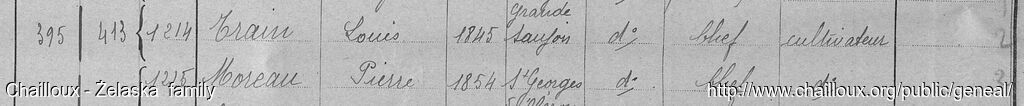 395 413 1214 Train Louis 1845 Grande Saujon do Chef cultivateur
1215 Moreau Pierre 1854 St Georges do Chef do
Chailloux - Želaska family http://www.chailloux.org/public/geneal/